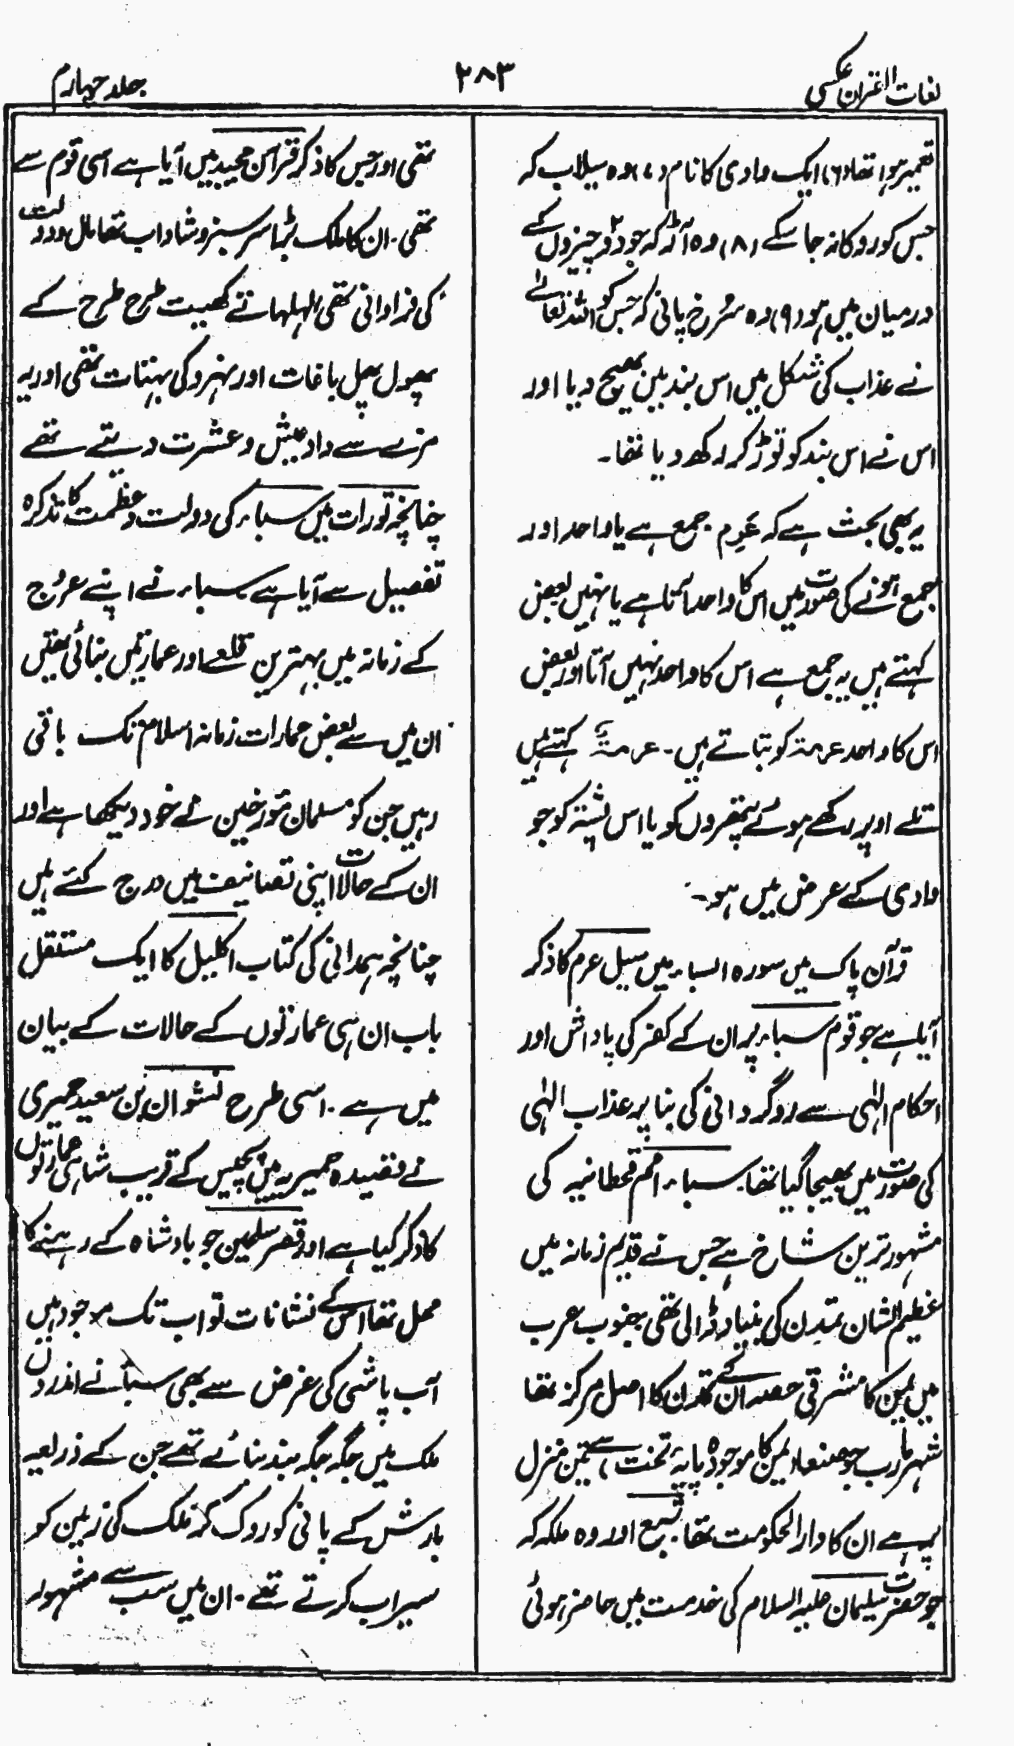 لغات القرآن عکسی
۲۸۳
جلد چہارم
تعمیر ہوا تھا (۶) ایک وادی کا نام (۷) وہ سیلاب کہ
جس کو روکا نہ جا سکے (۸) وہ آڑ کہ جو دو چیزوں کے
درمیان میں ہو (۹) وہ سُرخ پانی کہ جس کو اللہ تعالےٰ
نے عذاب کی شکل میں اس بند میں بھیج دیا اور
اس نے اس بند کو توڑ کر رکھ دیا تھا۔
یہ بھی بحث ہے کہ عَرِم جمع ہے یا واحد اور
جمع ہونے کی صورت میں اس کا واحد آتا ہے یا نہیں بعض
کہتے ہیں یہ جمع ہے اس کا واحد نہیں آتا اور بعض
اس کا واحد عرمۃ کو بتاتے ہیں۔ عرمۃ کہتے ہیں
تلے اوپر رکھے ہوئے پتھروں کو یا اس پشتہ کو جو
وادی کے عرض میں ہو۔
قرآن پاک میں سورہ السباء میں سیل عرم کا ذکر
آیا ہے جو قوم سباء پر ان کے کفر کی پاداش اور
احکام الٰہی سے روگردانی کی بنا پر عذاب الٰہی
کی صورت میں بھیجا گیا تھا۔ سباء امم قحطانیہ کی
مشہور ترین شاخ ہے جس نے قدیم زمانہ میں
عظیم الشان تمدن کی بنیاد ڈالی تھی جنوب عرب
میں یمن کا مشرقی حصہ ان کے تمدن کا اصل مرکز تھا
شہر مارب جو صنعا یمن کا موجودہ پایۂ تخت ہے تین منزل
پر ہے ان کا دار الحکومت تھا۔ تبع اور وہ ملکہ کہ
جو حضرت سلیمان علیہ السلام کی خدمت میں حاضر ہوئی
تھی اور جس کا ذکر قرآن مجید میں آیا ہے اسی قوم سے
تھی۔ ان کا ملک بڑا سرسبز و شاداب تھا مال و دولت
کی فراوانی تھی لہلہاتے کھیت طرح طرح کے
پھول پھل باغات اور نہرو کی بہتات تھی اور یہ
مزے سے داد عیش و عشرت دیتے تھے
چنانچہ تورات میں سباء کی دولت و عظمت کا تذکرہ
تفصیل سے آیا ہے سباء نے اپنے عروج
کے زمانہ میں بہترین قلعے اور عمارتیں بنائی تھیں
ان میں سے بعض عمارات زمانہ اسلام تک باقی
رہیں جن کو مسلمان مؤرخین نے خود دیکھا ہے اور
ان کے حالات اپنی تصانیف میں درج کئے ہیں
چنانچہ ہمدانی کی کتاب اکلیل کا ایک مستقل
باب ان ہی عمارتوں کے حالات کے بیان
میں ہے۔ اسی طرح نشوان بن سعید حمیری
نے قصیدہ حمیریہ میں پچیس کے قریب شاہی عمارتوں
کا ذکر کیا ہے اور قصر سلحین جو بادشاہ کے رہنے کا
محل تھا اس کے نشانات تو اب تک موجود ہیں
آب پاشی کی غرض سے بھی سبا نے اندرون
ملک میں جگہ جگہ بند بنائے تھے جن کے ذریعہ
بارش کے پانی کو روک کر ملک کی زمین کو
سیراب کرتے تھے۔ ان میں سب سے مشہور